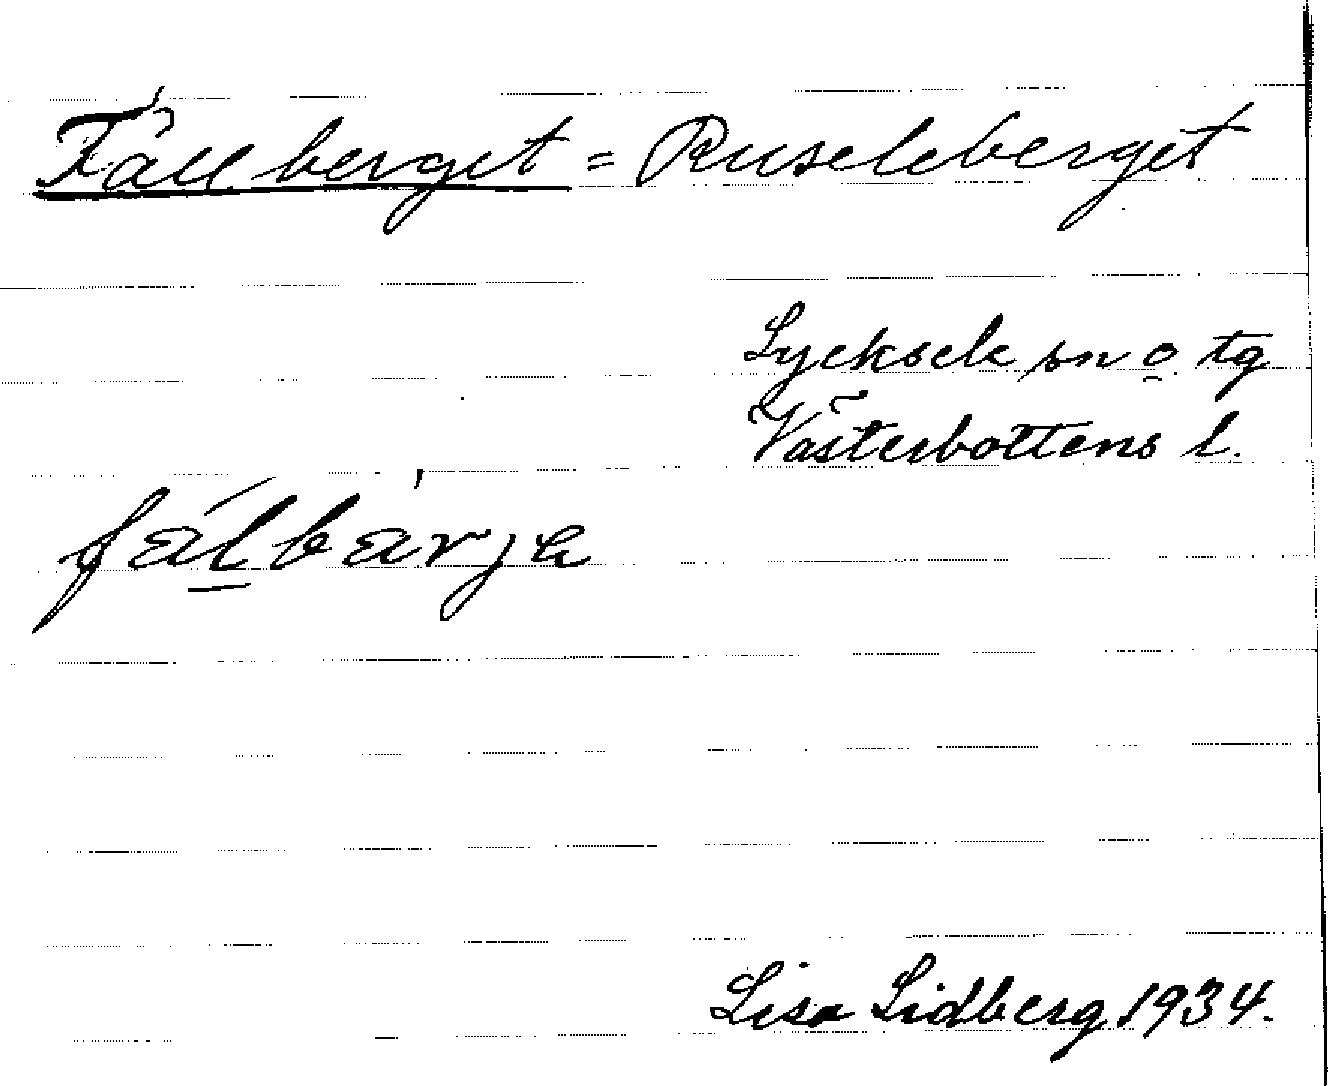 Fällberget = Ruseleberget
Lycksele sn o. tg
Västerbottens l.
fälbärja
Lisa Lidberg 1934.